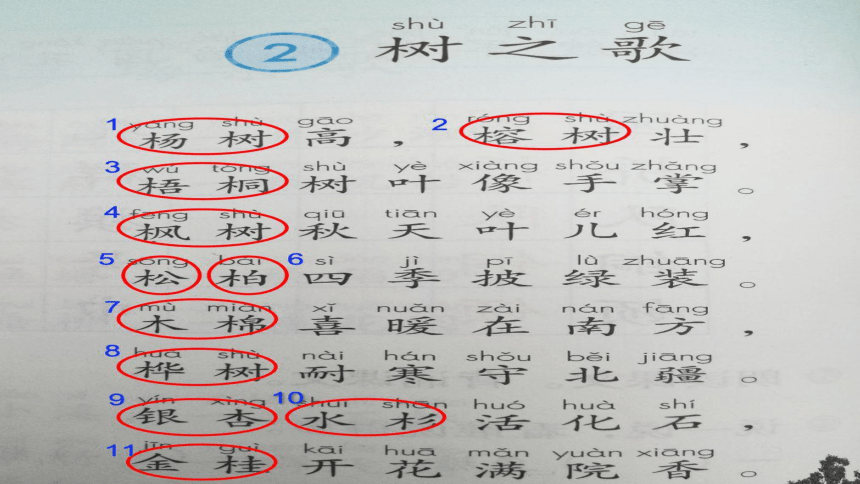 shù zhī gē
2 树 之 歌
1 yáng shù gāo 2 róng shù zhuàng
杨 树 高 ， 榕 树 壮 ，
3 wú tóng shù yè xiàng shǒu zhǎng
梧 桐 树 叶 像 手 掌 。
4 fēng shù qiū tiān yè ér hóng
枫 树 秋 天 叶 儿 红 ，
5 sōng bǎi 6 sì jì pī lǜ zhuāng
松 柏 四 季 披 绿 装 。
7 mù mián xǐ nuǎn zài nán fāng
木 棉 喜 暖 在 南 方 ，
8 huà shù nài hán shǒu běi jiāng
桦 树 耐 寒 守 北 疆 。
9 yín xìng 10 shuǐ shān huó huà shí
银 杏 水 杉 活 化 石 ，
11 jīn guì kāi huā mǎn yuàn xiāng
金 桂 开 花 满 院 香 。